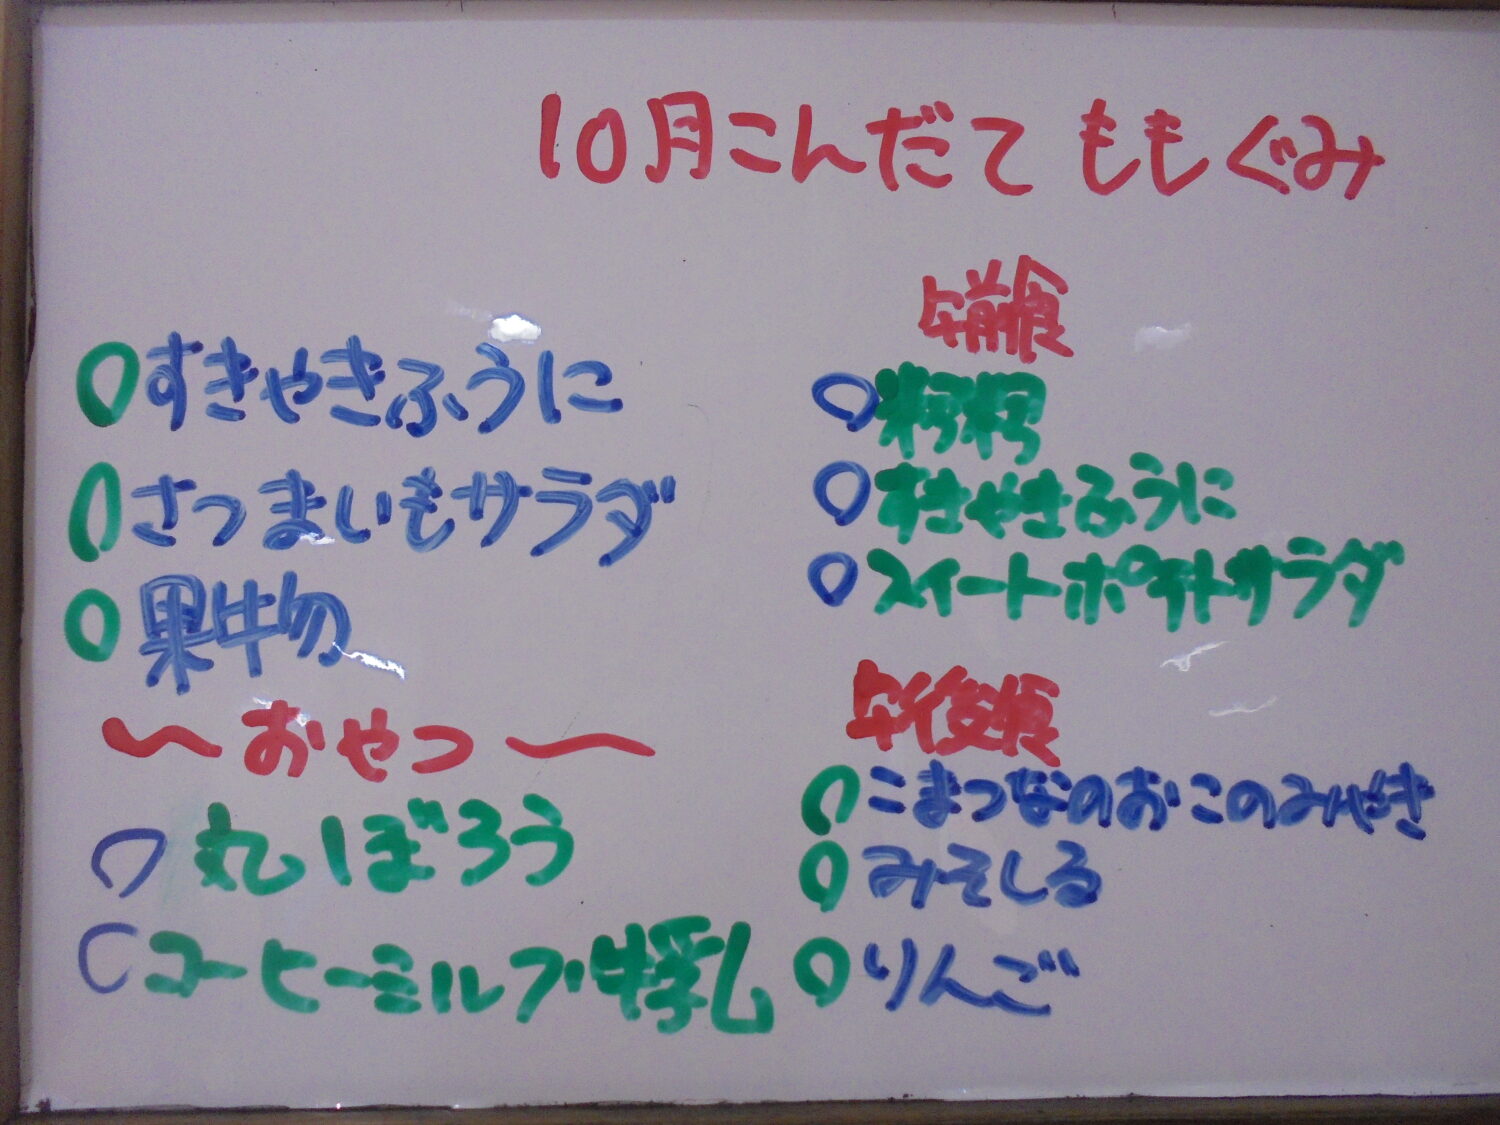 10月こんだて ももぐみ
○すきやきふうに
○さつまいもサラダ
○果物
〜おやつ〜
○丸ぼうろう
○コーヒーミルク 牛乳
午前食
○
○すきやきふうに
○スイートポテトサラダ
午後食
○こまつなのおこのみやき
○みそしる
○りんご